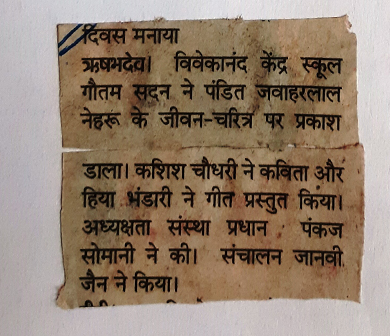 दिवस मनाया
ऋषभदेव। विवेकानंद केंद्र स्कूल
गौतम सदन ने पंडित जवाहरलाल
नेहरू के जीवन-चरित्र पर प्रकाश
डाला। कशिश चौधरी ने कविता और
हिया भंडारी ने गीत प्रस्तुत किया।
अध्यक्षता संस्था प्रधान पंकज
सोमानी ने की। संचालन जानवी
जैन ने किया।